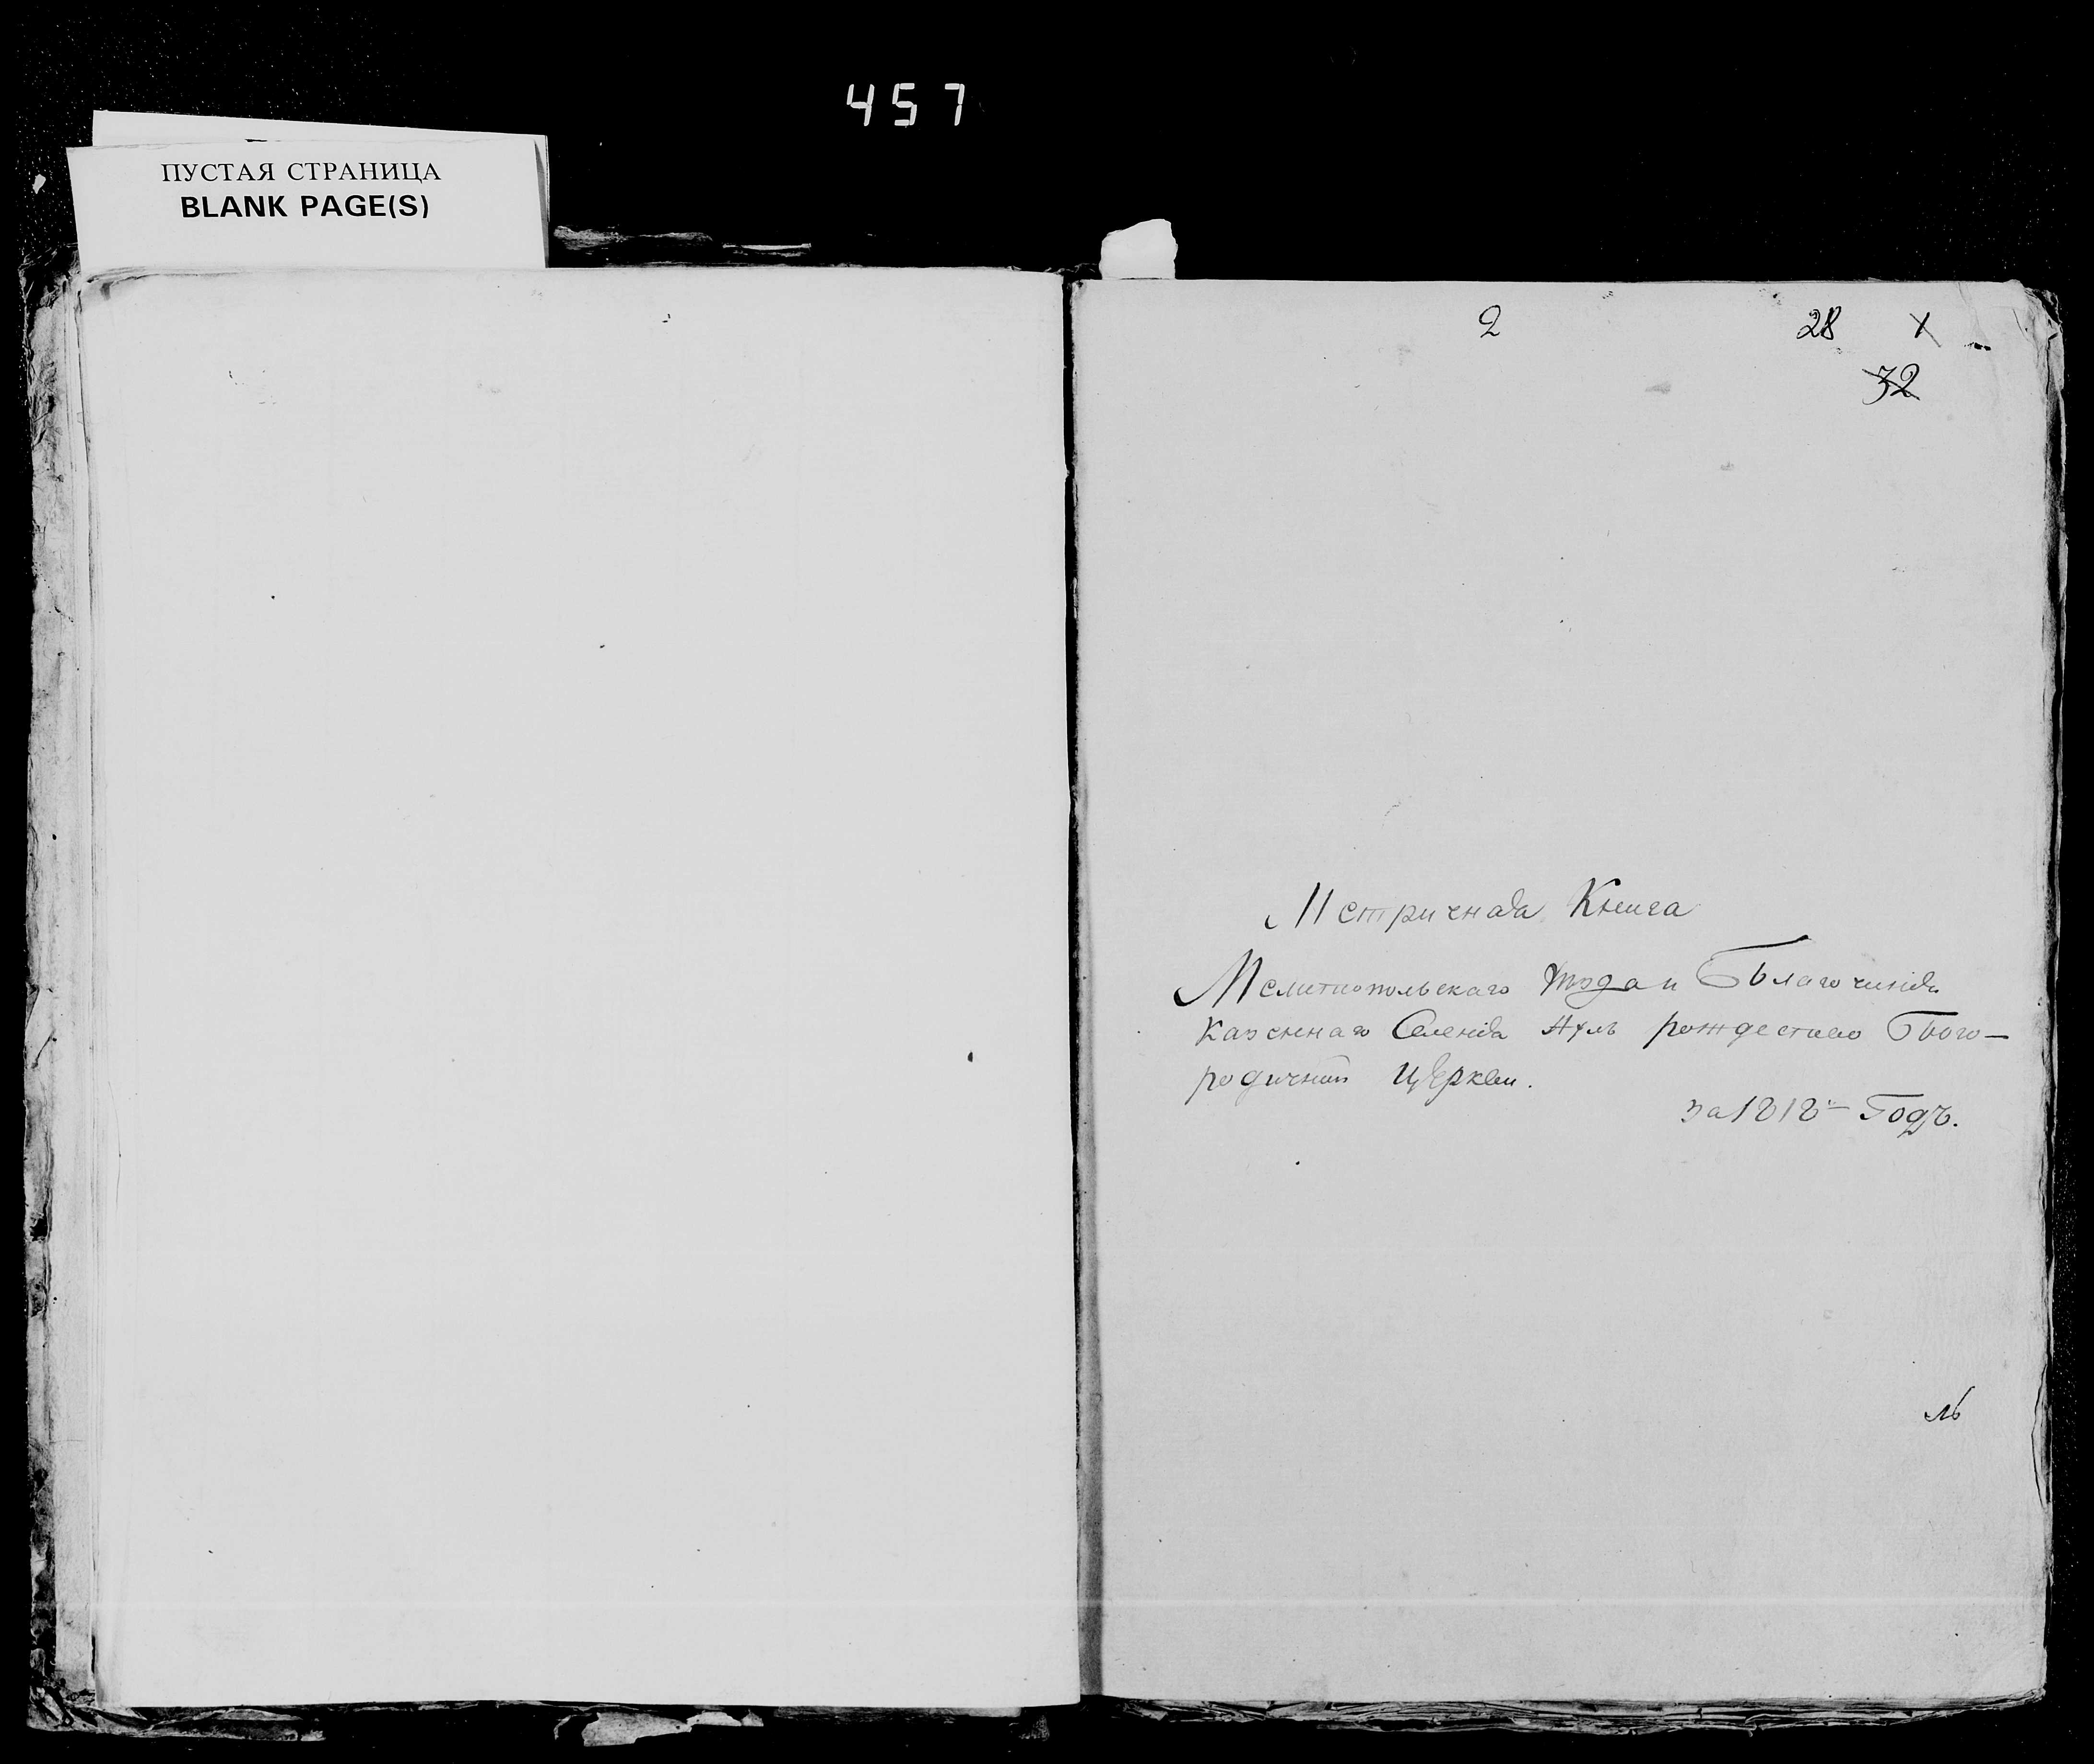 457
ПУСТАЯ СТРАНИЦА
BLANK PAGE(S)
2 28 1
32
Метричная Книга
Мелитопольскаго уезда и Благочинія
казеннаго Селенія рождество Бого-
родичной Церкви.
за 1818 Годъ.